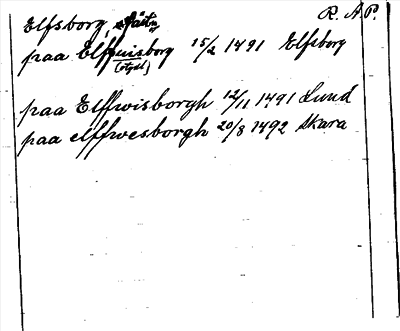 Elfsborg, fästn R. A. P.
paa Elffuisborg 15/2 1491 Elfsborg
(otyd.)
paa Elffwisborgh 12/11 1491 Lund
paa elffwesborgh 20/8 1492 Skara